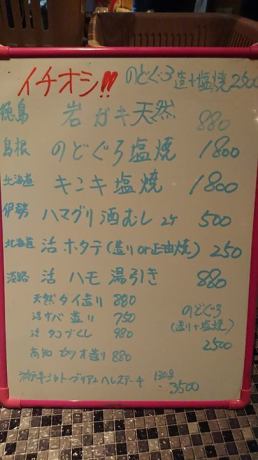 イチオシ!! のどぐろ造り+塩焼2500
徳島 岩ガキ天然 880
島根 のどぐろ塩焼 1800
北海道 キンキ塩焼 1800
伊勢 ハマグリ酒むし 2ケ 500
北海道 活ホタテ(造りor正油焼) 250
淡路 活ハモ湯引き 880
天然タイ造り 880
活サバ造り 750
活タコづくし 980
高知カツオ造り 880
のどぐろ
(造り+塩焼)
2500
シャトーブリアンヘレステーキ 130g 3500